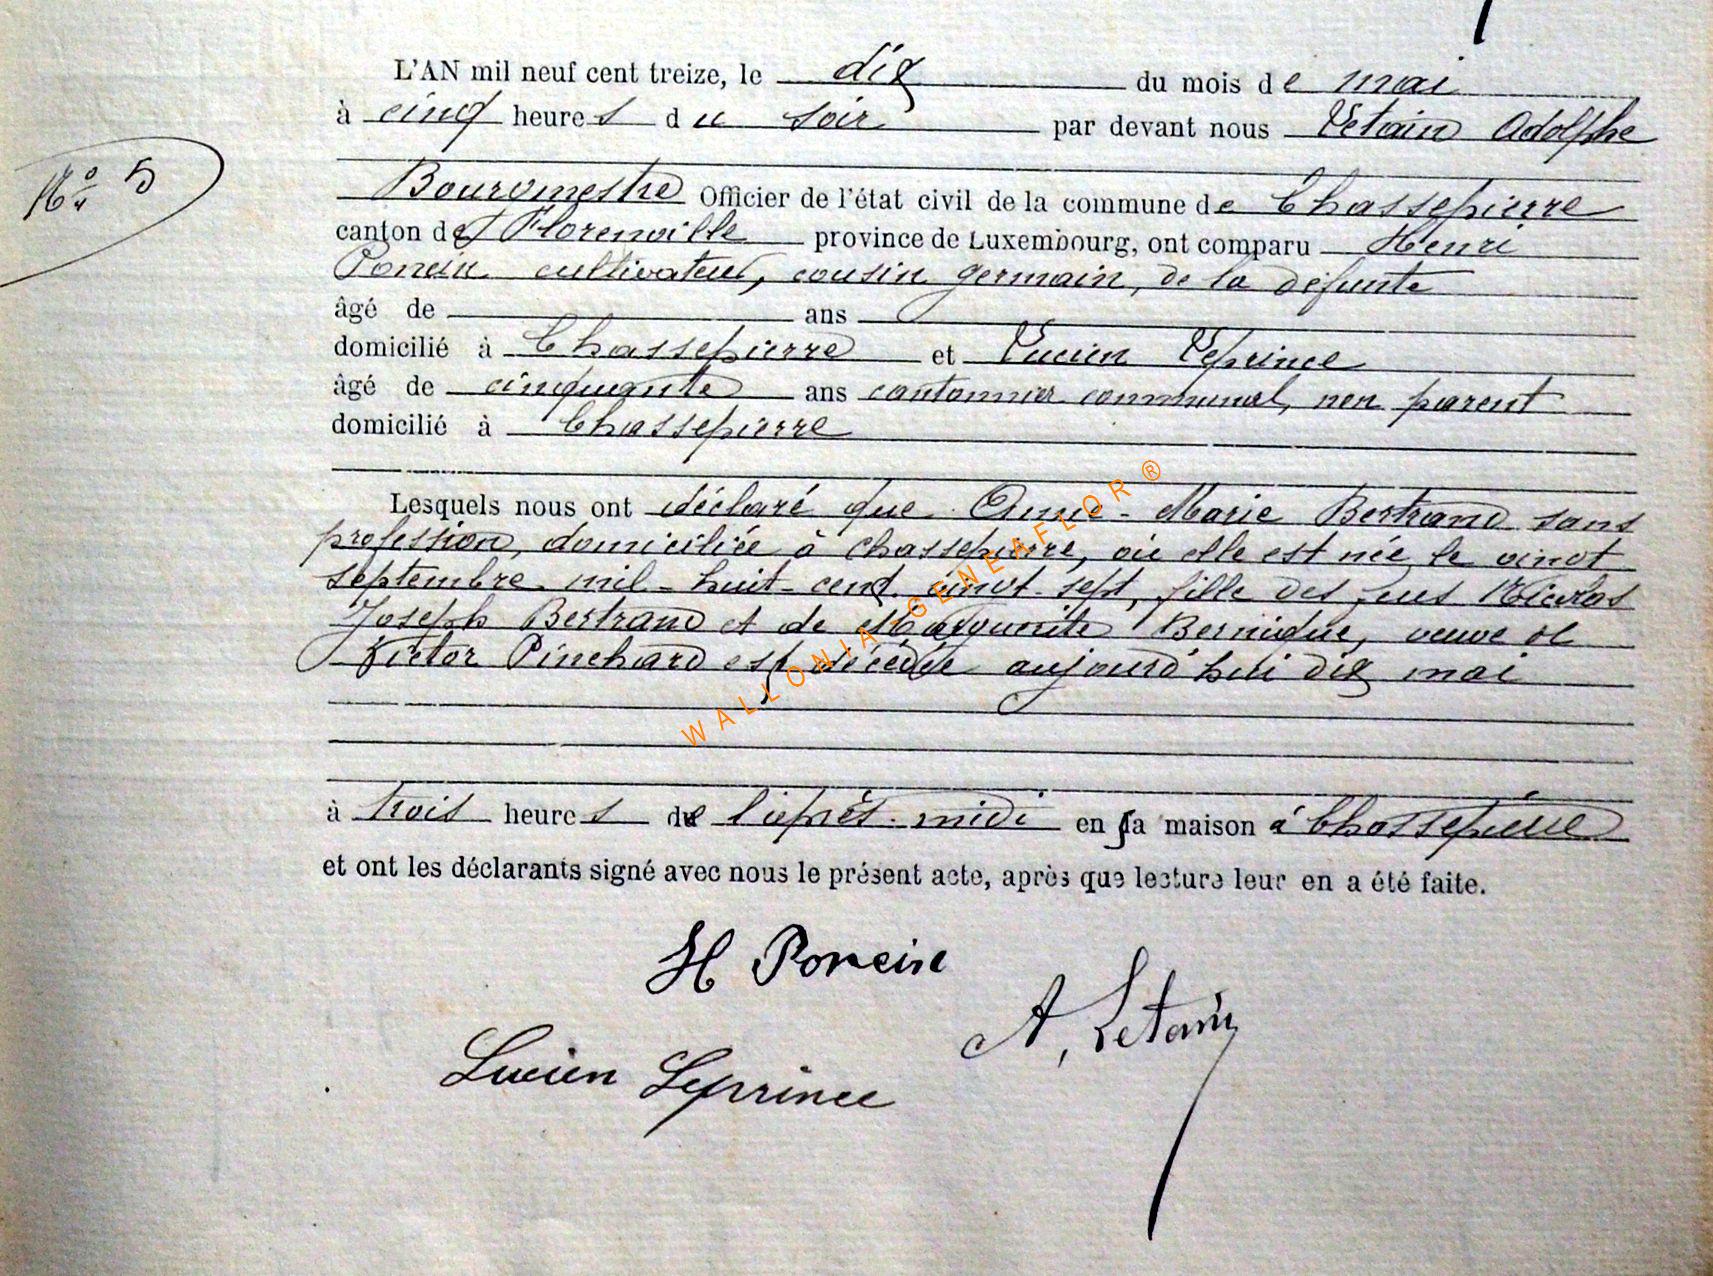 L'AN mil neuf cent treize, le dix du mois de mai
à cinq heures du soir par devant nous Letain Adolphe
N° 5
Bourgmestre Officier de l'état civil de la commune de Chassepierre
canton de Florenville province de Luxembourg, ont comparu Henri
Poncin cultivateur, cousin germain, de la défunte
âgé de ans
domicilié à Chassepierre et Lucien Leprince
âgé de cinquante ans cantonnier communal, non parent
domicilié à Chassepierre
Lesquels nous ont déclaré que Anne-Marie Bertrand sans
profession, domiciliée à Chassepierre, où elle est née le vingt
septembre mil-huit-cent vingt-sept, fille des feus Nicolas
Joseph Bertrand et de Marguerite Bernique, veuve de
Victor Pinchard est décédée aujourd'hui dix mai
à trois heures de l'après-midi en sa maison à Chassepierre
et ont les déclarants signé avec nous le présent acte, après que lecture leur en a été faite.
H Poncin
A, Letain
Lucien Leprince
WALLONIA-GENEAFLOR®